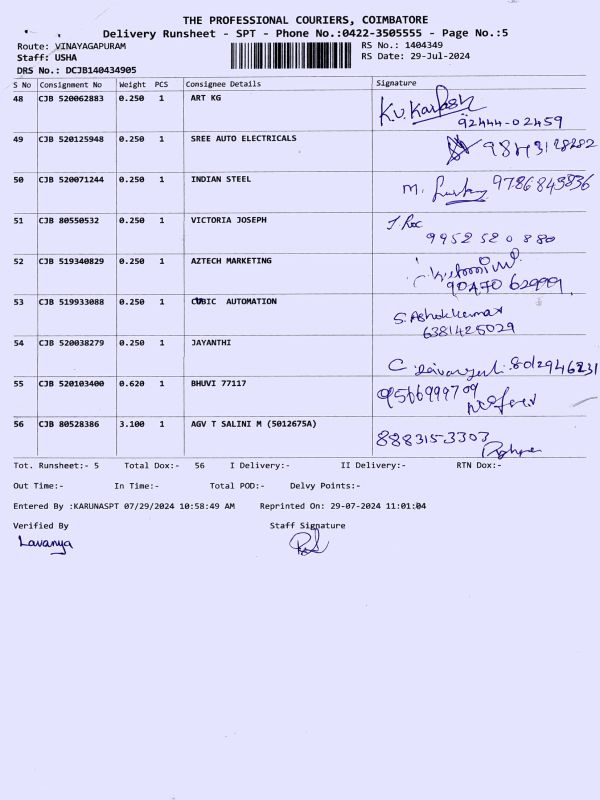 THE PROFESSIONAL COURIERS, COIMBATORE
Delivery Runsheet - SPT - Phone No.:0422-3505555 - Page No.:5
Route: VINAYAGAPURAM RS No.: 1404349
Staff: USHA RS Date: 29-Jul-2024
DRS No.: DCJB140434905
S No Consignment No Weight PCS Consignee Details Signature
48 CJB 520062883 0.250 1 ART KG K.V. Karthik
92444-02459
49 CJB 520125948 0.250 1 SREE AUTO ELECTRICALS
50 CJB 520071244 0.250 1 INDIAN STEEL M. 9786843836
51 CJB 80550532 0.250 1 VICTORIA JOSEPH
9952520880
52 CJB 519340829 0.250 1 AZTECH MARKETING
90470 62999
53 CJB 519933088 0.250 1 CUBIC AUTOMATION S. Ashokkumar
6381425029
54 CJB 520038279 0.250 1 JAYANTHI
C
55 CJB 520103400 0.620 1 BHUVI 77117 9566999709
56 CJB 80528386 3.100 1 AGV T SALINI M (5012675A) 888315-3303
Tot. Runsheet:- 5 Total Dox:- 56 I Delivery:- II Delivery:- RTN Dox:-
Out Time:- In Time:- Total POD:- Delvy Points:-
Entered By :KARUNASPT 07/29/2024 10:58:49 AM Reprinted On: 29-07-2024 11:01:04
Verified By Staff Signature
Lavanya